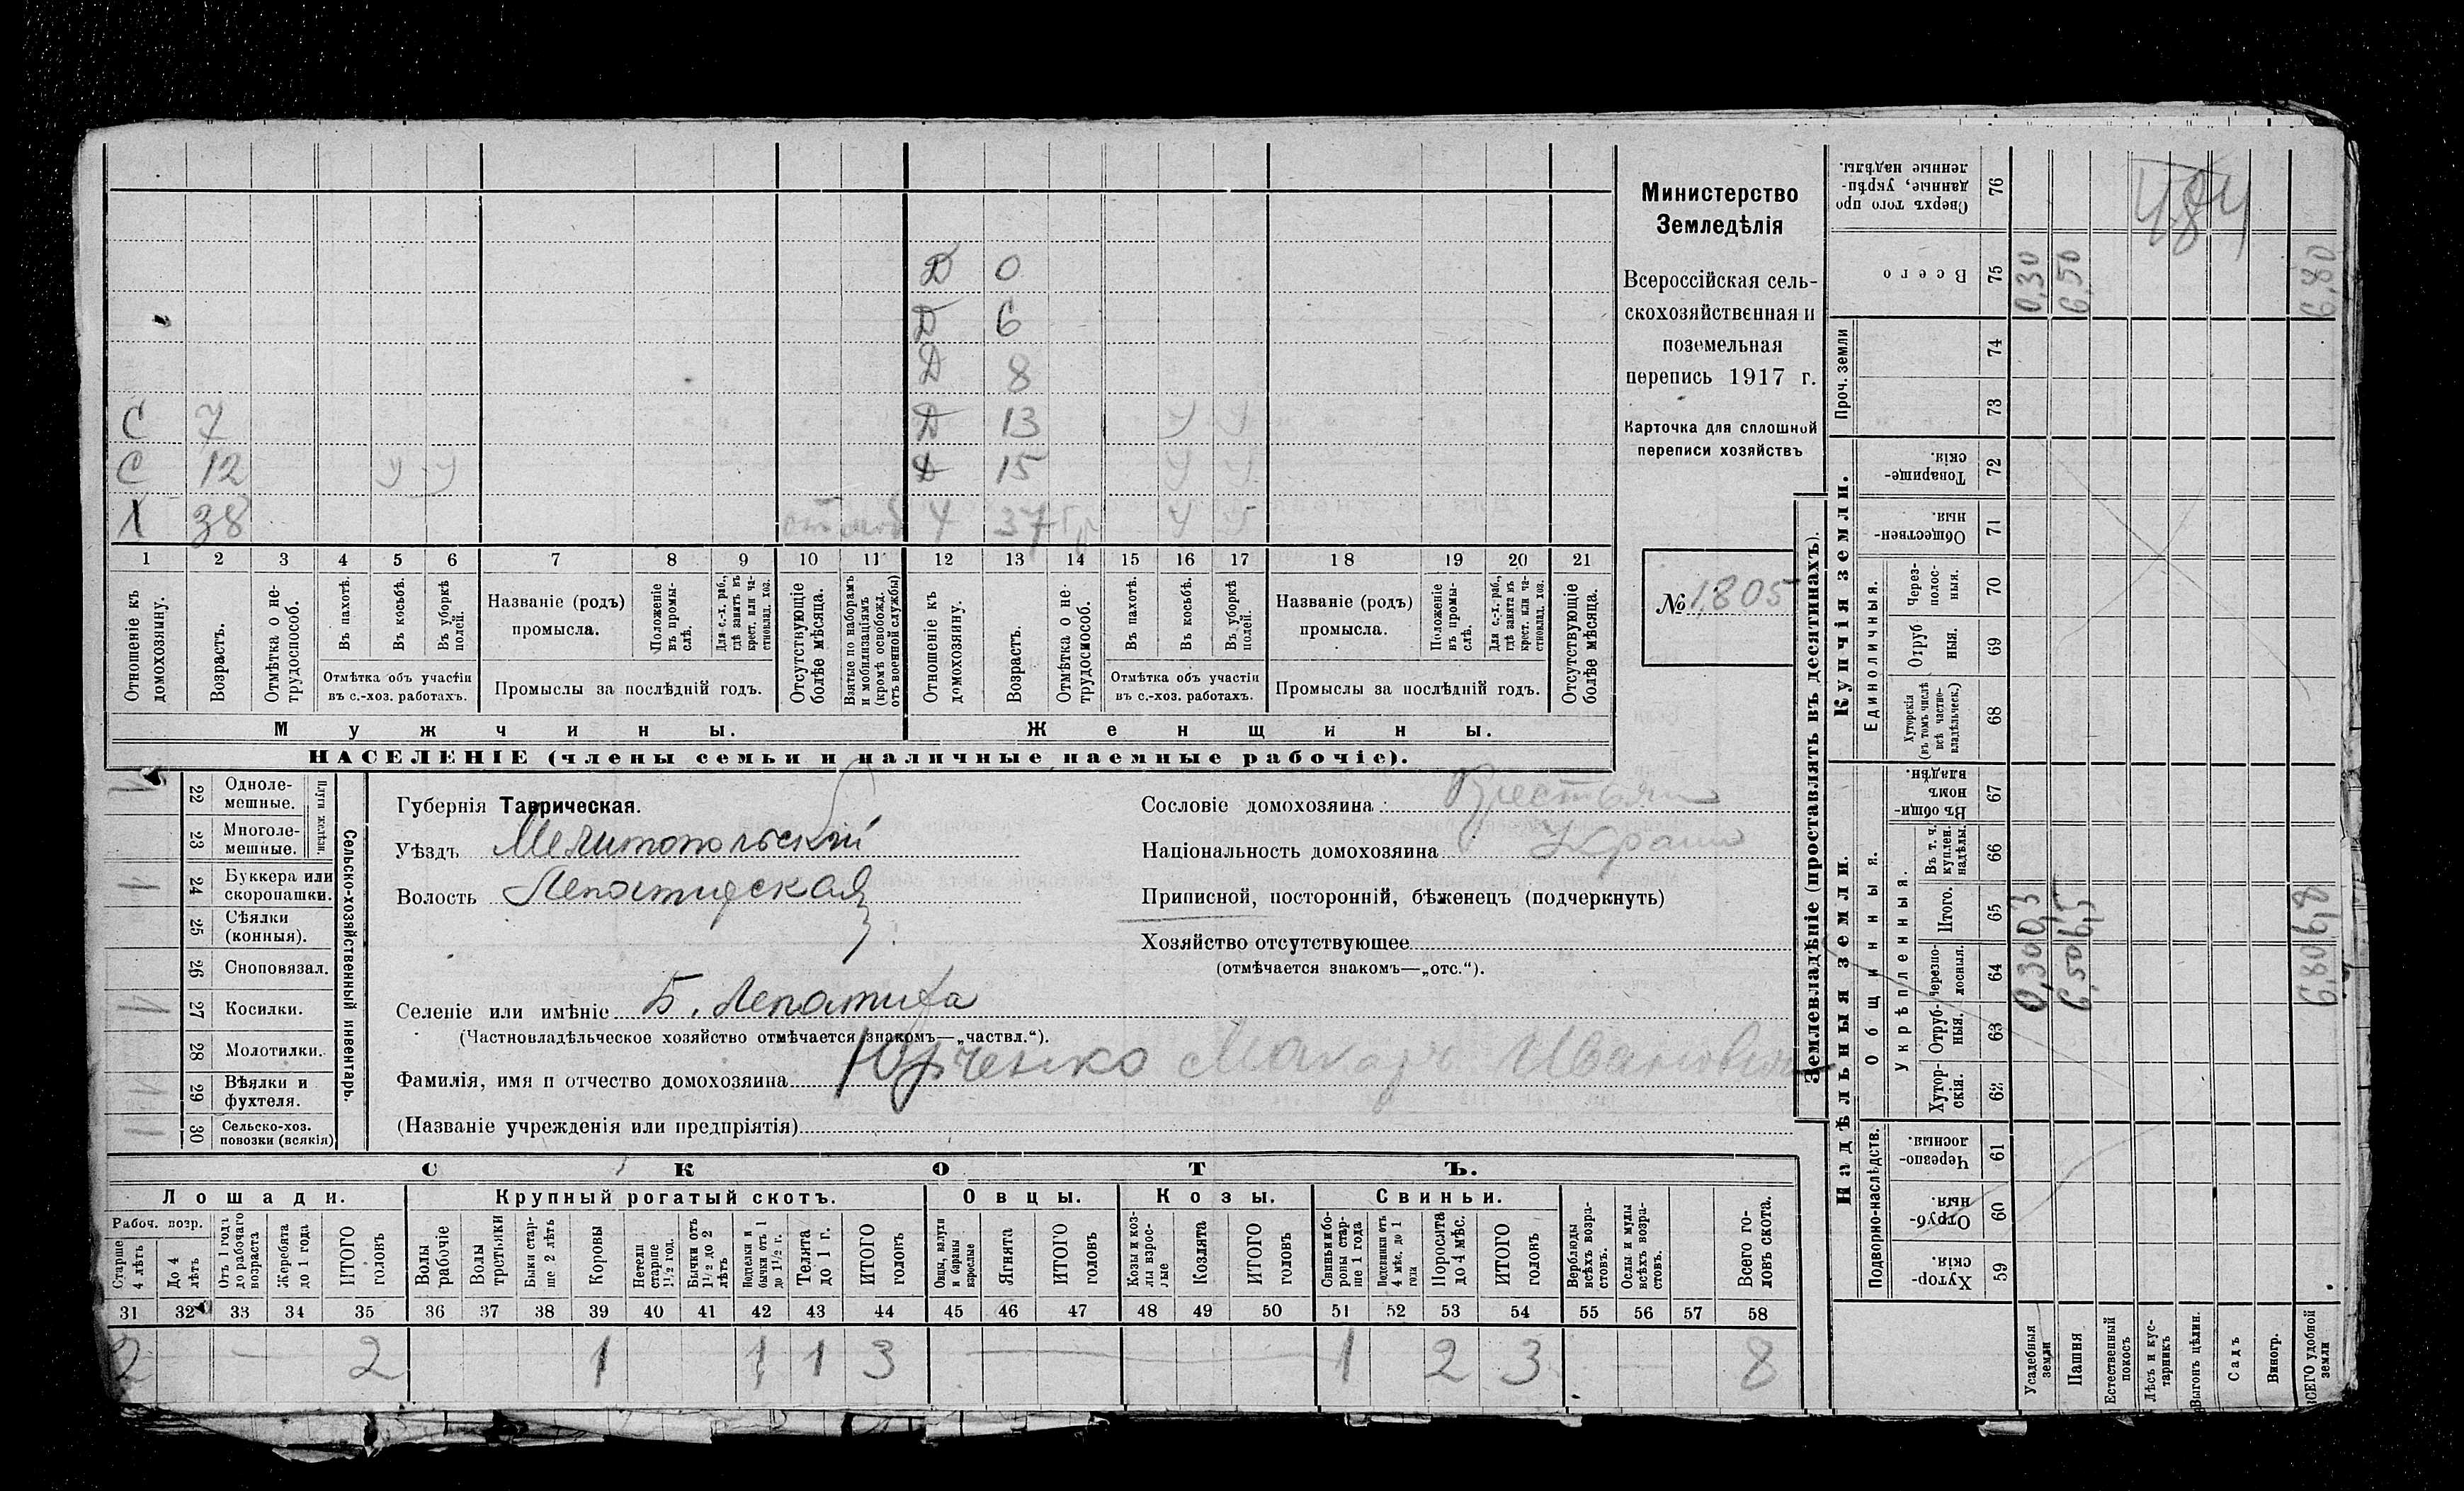 Д 0
Д 6
Д 8
С 7 Д 13 У У
С 12 У У Д 15 У У
Х 38 Ж 37 Гр У У
1 2 3 4 5 6 7 8 9 10 11 12 13 14 15 16 17 18 19 20 21
Отношеніе къ домохозяину.
Возрастъ.
Отмѣтка о нетрудоспособ.
Въ пахотѣ.
Въ косьбѣ.
Въ уборкѣ полей.
Отмѣтка объ участіи
въ с.-хоз. работахъ.
Названіе (родъ)
промысла.
Положеніе въ промыслѣ.
Для с.-х. раб., гдѣ занятъ въ крест. или частновлад. хоз.
Промыслы за послѣдній годъ.
Отсутствующіе болѣе мѣсяца.
Взятые по наборамъ и мобилизаціямъ (кромѣ освобожд. отъ военной службы)
Отношеніе къ домохозяину.
Возрастъ.
Отмѣтка о нетрудоспособ.
Въ пахотѣ.
Въ косьбѣ.
Въ уборкѣ полей.
Отмѣтка объ участіи
въ с.-хоз. работахъ.
Названіе (родъ)
промысла.
Положеніе въ промыслѣ.
Для с.-х. раб., гдѣ занята въ крест. или частновлад. хоз.
Промыслы за послѣдній годъ.
Отсутствующіе болѣе мѣсяца.
Мужчины. Женщины.
НАСЕЛЕНІЕ (члены семьи и наличные наемные рабочіе).
Министерство
Земледѣлія
Всероссійская сель-
скохозяйственная и
поземельная
перепись 1917 г.
Карточка для сплошной
переписи хозяйствъ
№ 1805
22 Одноле-
мешные.
23 Многоле-
мешные.
Плуги желѣзн.
24 Буккера или
скоропашки.
25 Сѣялки
(конныя).
26 Сноповязал.
27 Косилки.
28 Молотилки.
29 Вѣялки и
фухтеля.
30 Сельско-хоз.
повозки (всякія)
Сельско-хозяйственный инвентарь.
Губернія Таврическая.
Уѣздъ Мелитопольскій
Волость Лепатихская
Селеніе или имѣніе Б. Лепатиха
(Частновладѣльческое хозяйство отмѣчается знакомъ—„частвл.“).
Фамилія, имя и отчество домохозяина Юрченко Макаръ Ивановичъ
(Названіе учрежденія или предпріятія)
Сословіе домохозяина: Крестьян
Національность домохозяина Украин
Приписной, посторонній, бѣженецъ (подчеркнуть)
Хозяйство отсутствующее
(отмѣчается знакомъ—„отс.“).
СКОТЪ.
Лошади. Крупный рогатый скотъ. Овцы. Козы. Свиньи.
Рабоч. возр.
Старше 4 лѣтъ
До 4 лѣтъ
Отъ 1 года до рабочаго возраста
Жеребята до 1 года
ИТОГО головъ
Волы рабочіе
Волы третьяки
Быки старше 2 лѣтъ
Коровы
Нетели старше 1½ год.
Бычки отъ 1½ до 2 лѣтъ
Подтелки и бычки отъ 1 до 1½ г.
Телята до 1 г.
ИТОГО головъ
Овцы, валухи и бараны взрослые
Ягнята
ИТОГО головъ
Козы и козлы взрослые
Козлята
ИТОГО головъ
Свиньи и боровы старше 1 года
Подсвинки отъ 4 мѣс. до 1 года
Поросята до 4 мѣс.
ИТОГО головъ
Верблюды всѣхъ возрастовъ.
Ослы и мулы всѣхъ возрастовъ.
Всего головъ скота.
31 32 33 34 35 36 37 38 39 40 41 42 43 44 45 46 47 48 49 50 51 52 53 54 55 56 57 58
2 — 2 1 1 1 3 — 1 2 3 8
Землевладѣніе (проставлять въ десятинахъ).
Надѣльныя земли. Купчія земли.
Подворно-наслѣдств.
Общинныя.
Укрѣпленныя.
Единоличныя.
Проч. земли
Хуторскія. 59
Отрубныя. 60
Черезполосныя. 61
Хуторскія. 62
Отрубныя. 63
Черезполосныя. 64
Итого. 65
Въ т. ч. куплен. надѣлы. 66
Въ общинномъ владѣн. 67
Хуторскія (въ томъ числѣ всѣ частновладѣльческ.) 68
Отрубныя. 69
Черезполосныя. 70
Общественныя. 71
Товарищескія. 72
73
74
Всего 75
Сверхъ того проданные, укрѣпленные надѣлы. 76
Усадебныя земли 0,30 0,3 0,30
Пашня 6,50 6,5 6,50
Естественный покосъ
Лѣсъ и кустарникъ
Выгонъ цѣлин.
Садъ
Виногр.
ВСЕГО удобной земли 6,80 6,8 6,80
484